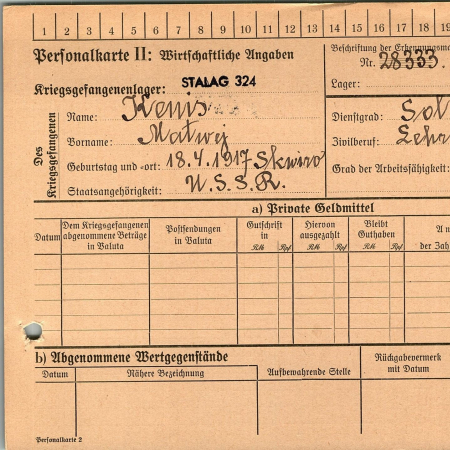 1 2 3 4 5 6 7 8 9 10 11 12 13 14 15 16 17 18 19
Personalkarte II: Wirtschaftliche Angaben
Beschriftung der Erkennungsma
Nr. 28333.
Kriegsgefangenenlager: STALAG 324
Lager:
Des Kriegsgefangenen
Name: Kenis
Vorname: Matwej
Geburtstag und -ort: 18.4.1917 Skwiro
Staatsangehörigkeit: U.S.S.R.
Dienstgrad: Sol
Zivilberuf: Lehr
Grad der Arbeitsfähigkeit:
a) Private Geldmittel
Datum
Dem Kriegsgefangenen abgenommene Beträge in Valuta
Postsendungen in Valuta
Gutschrift in
RM Rpf
Hiervon ausgezahlt
RM Rpf
Bleibt Guthaben
RM Rpf
An
der Zah
b) Abgenommene Wertgegenstände
Datum
Nähere Bezeichnung
Aufbewahrende Stelle
Rückgabevermerk mit Datum
Personalkarte 2